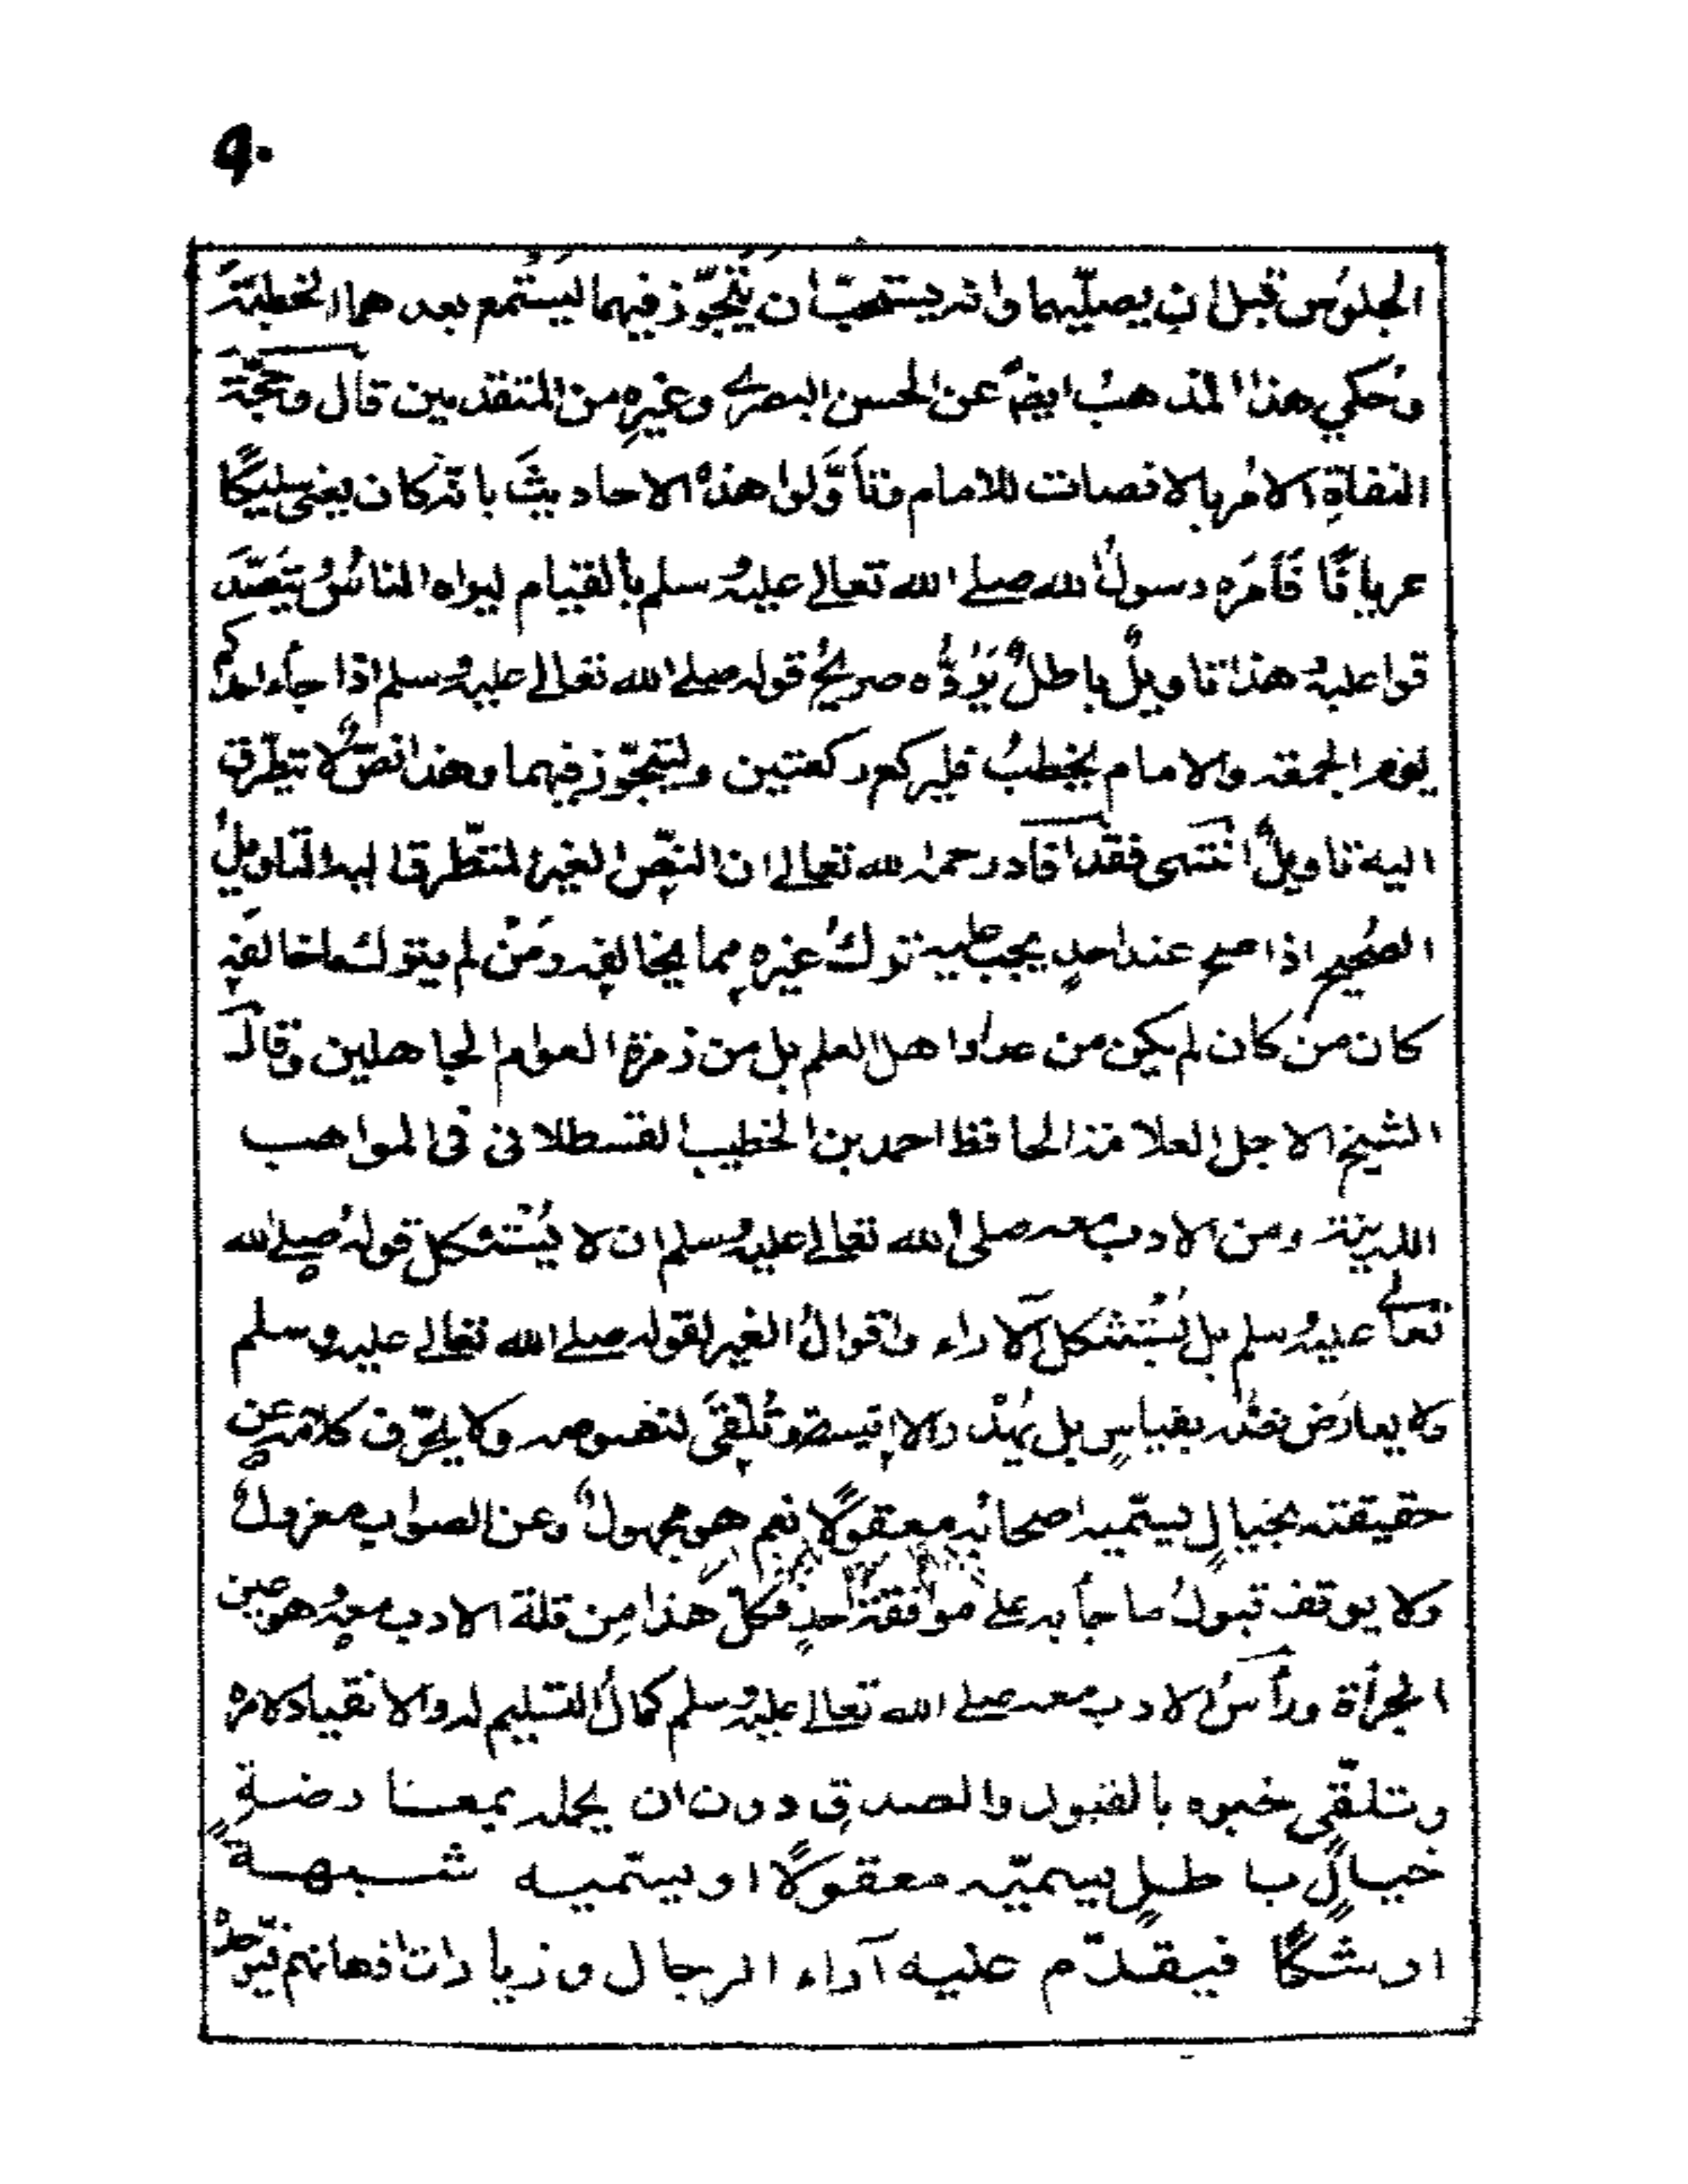 ٩٠
الجلوُس قبل ان يصلّيهما وانه يستحبّ ان يَّتجوّز فيهما ليستمع بعد هما الخطبةَ
وحُكي هذا المذهبُ ايضًا عن الحسن البصري وغيرِه من المتقدمين قال وحجّة
النفاةِ الامُر بالانصات للامام وتأوَّلوا هذه الاحاديثَ بانّه كان يعنی سليكًا
عريانًا فَاَمَره رسولُ الله صلے الله تعالے عليه وسلم بالقيام ليراه الناسُ يتصَّدَ
قوا عليه هذا تاويلٌ باطلٌ يَرُدُّه صريحُ قوله صلے الله تعالے عليه وسلم اذا جاء احدكم
يوم الجمعة والامام يخطبُ فليركع ركعتين وليتجوّز فيهما وهذا نصٌّ لا يتطرّق
اليه تاويلٌ انتهى فقد افاد رحمه الله تعالے ان النصّ الغير المتطّرق اليه التاويلُ
الصحيح اذا صح عند احدٍ يجب عليه تركُ غيره مما يخالفه ومَنْ لم يترك ما خالفه
كان من كان لم يكن من عداد اهل العلم بل من زمرة العوام الجاهلين وقال
الشيخ الاجل العلامة الحافظ احمد بن الخطيب القسطلانی فی المواهب
اللدينة ومن الادب معه صلی الله تعالے عليه وسلم ان لا يُسْتشكل قولُه صلے الله
تعالے عليه وسلم بل يُستشكل الآراء واقوالُ الغير لقوله صلے الله تعالے عليه وسلم
ولا يعارَض نصُّه بقياسٍ بل يُهدّ الاقيسة وتُلْقَى لنصوصه ولا يحّرف كلامَه عن
حقيقته بخيالٍ يسمّيه اصحابُه معقولًا نعم هو مجهولٌ وعن الصواب معزولٌ
ولا يوقف قبولُ ما جأ به على موافقة احدٍ فكلّ هذا مِن قلة الادب معه وهو عين
الجرأة ورأسُ الادب معه صلے الله تعالے عليه وسلم كمالُ التسليم له والانقياد لامره
وتلقّي خبره بالقبول والصدقِ دون ان يحمله بمعارضةِ
خيالٍ باطلٍ يسميّه معقولًا او يسّميه شبهةً
او شكًا فيقدّم عليه آراء الرجال وزيادات اذهانهم فيوّحدُ